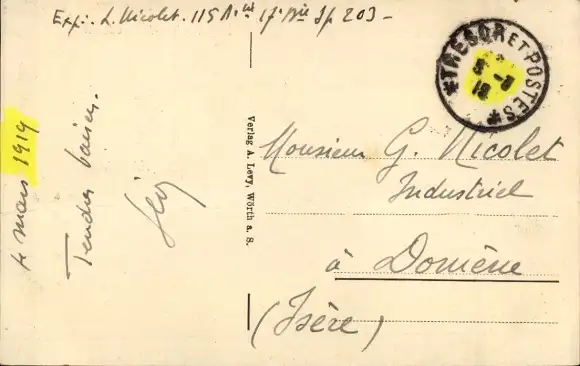 Exp: L. Nicolet. 115 A 17e Bie Sp 203 -
TRESOR ET POSTES
5 - 3
19
4 mars 1919
Tendres baisers.
Verlag A. Levy, Wörth a. S.
Monsieur G. Nicolet
Industriel
à Domène
(Isère)